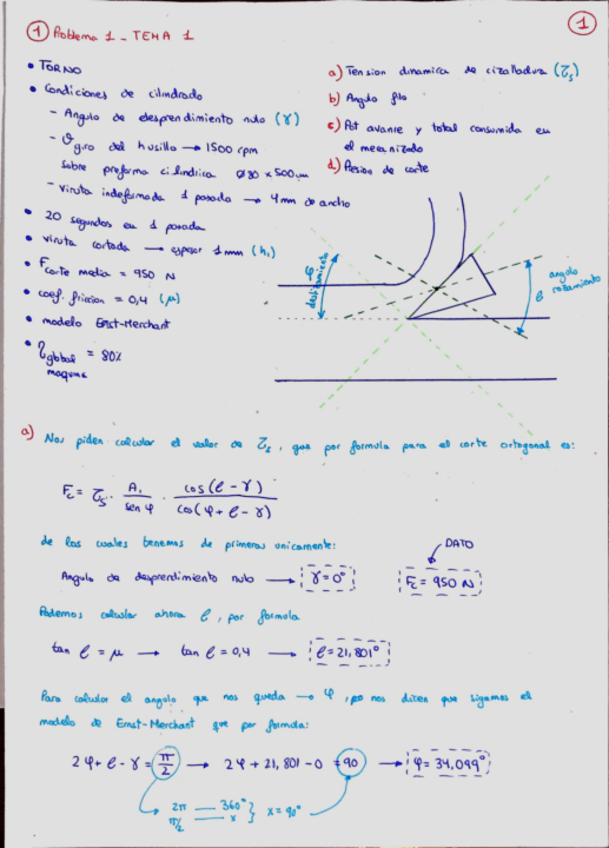 1
① Problema 1 - TEMA 1
• TORNO
• Condiciones de cilindrado
- Angulo de desprendimiento nulo (γ)
- ϑ giro del husillo → 1500 rpm
sobre preforma cilindrica Ø80 x 500mm
- viruta indeformada 1 pasada → 4mm de ancho
• 20 segundos en 1 pasada
• viruta cortada → espesor 1mm (h₁)
• Fcorte media = 950 N
• coef. friccion = 0,4 (μ)
• modelo Ernst-Merchant
• η global maquina = 80%
a) Tension dinamica de cizalladura (τs)
b) Angulo filo
c) Pot avance y total consumida en
el mecanizado
d) Presion de corte
φ
deslizamiento
angulo
rozamiento
ρ
a) Nos piden calcular el valor de τs, que por formula para el corte ortogonal es:
Fc = τs · A₁ / sen φ · cos(ρ - γ) / cos(φ + ρ - γ)
de las cuales tenemos de primeras unicamente:
DATO
Angulo de desprendimiento nulo → γ = 0° Fc = 950 N
Podemos calcular ahora ρ, por formula
tan ρ = μ → tan ρ = 0,4 → ρ = 21,801°
Para calcular el angulo que nos queda → φ, nos dicen que sigamos el
modelo de Ernst-Merchant que por formula:
2φ + ρ - γ = π/2 → 2φ + 21,801 - 0 = 90 → φ = 34,099°
2π — 360°
π/2 — x } x = 90°